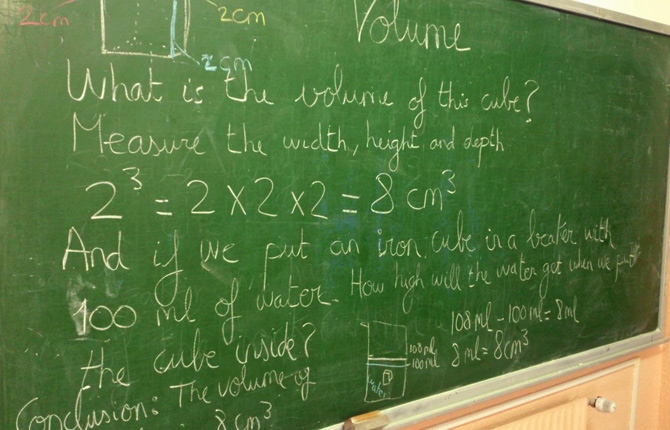 2cm
2cm
2cm
Volume
What is the volume of this cube?
Measure the width, height and depth
2³ = 2 x 2 x 2 = 8 cm³
And if we put an iron cube in a beaker with
100 ml of water. How high will the water get when we put
the cube inside?
108 ml - 100 ml = 8 ml
8 ml = 8 cm³
108 ml
100 ml
Conclusion: The volume of
8 cm³